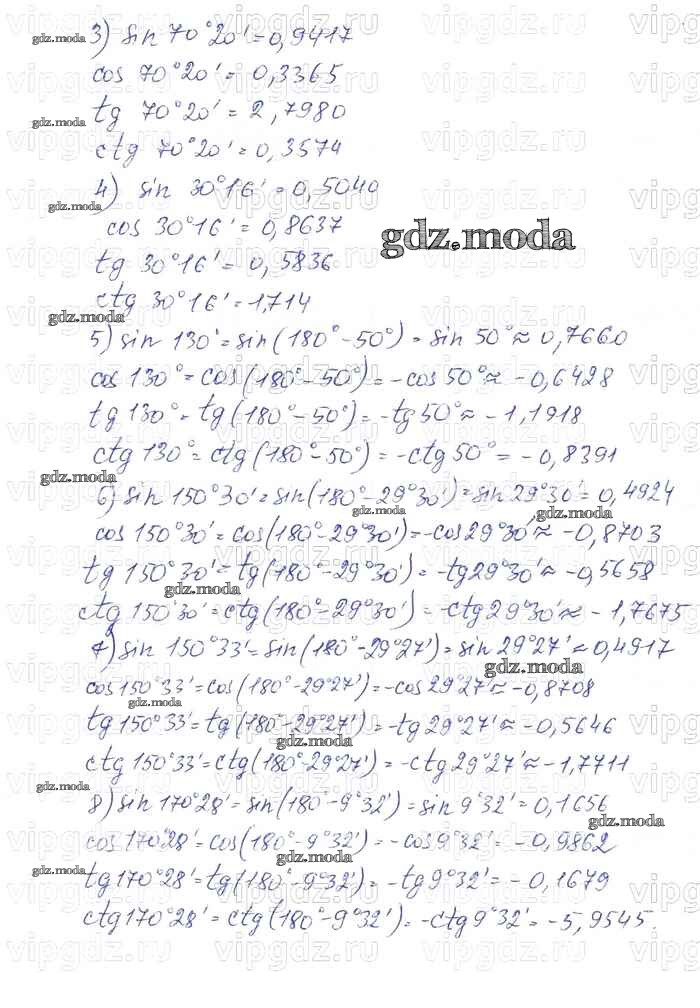 3) sin 70°20' = 0,9417
cos 70°20' = 0,3365
tg 70°20' = 2,7980
ctg 70°20' = 0,3574
4) sin 30°16' = 0,5040
cos 30°16' = 0,8637
gdz.moda
tg 30°16' = 0,5836
ctg 30°16' = 1,714
5) sin 130' = sin(180° - 50°) = sin 50° ≈ 0,7660
cos 130° = cos(180° - 50°) = -cos 50° ≈ -0,6428
tg 130° = tg(180° - 50°) = -tg 50° ≈ -1,1918
ctg 130° = ctg(180° - 50°) = -ctg 50° = -0,8391
6) sin 150°30' = sin(180° - 29°30') = sin 29°30' = 0,4924
cos 150°30' = cos(180° - 29°30') = -cos 29°30' ≈ -0,8703
tg 150°30' = tg(180° - 29°30') = -tg 29°30' ≈ -0,5658
ctg 150°30' = ctg(180° - 29°30') = -ctg 29°30' ≈ -1,7675
7) sin 150°33' = sin(180° - 29°27') = sin 29°27' ≈ 0,4917
cos 150°33' = cos(180° - 29°27') = -cos 29°27' ≈ -0,8708
tg 150°33' = tg(180° - 29°27') = -tg 29°27' ≈ -0,5646
ctg 150°33' = ctg(180° - 29°27') = -ctg 29°27' ≈ -1,7711
8) sin 170°28' = sin(180° - 9°32') = sin 9°32' = 0,1656
cos 170°28' = cos(180° - 9°32') = -cos 9°32' = -0,9862
tg 170°28' = tg(180° - 9°32') = -tg 9°32' = -0,1679
ctg 170°28' = ctg(180° - 9°32') = -ctg 9°32' = -5,9545.